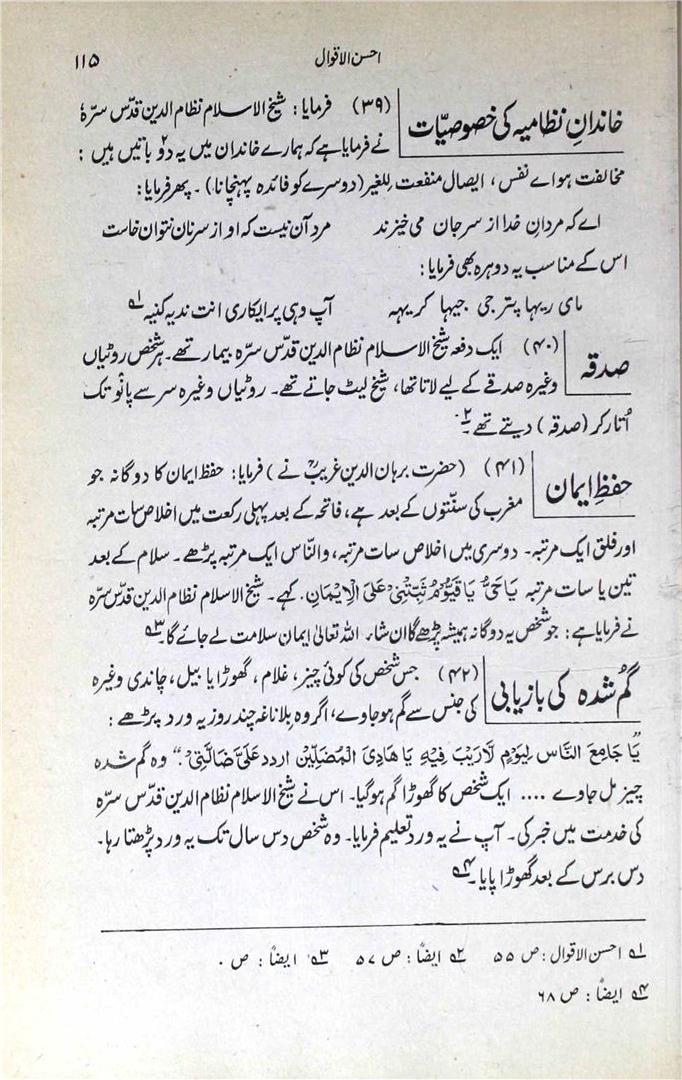 احسن الاقوال
۱۱۵
خاندانِ نظامیہ کی خصوصیّات
(۳۹) فرمایا: شیخ الاسلام نظام الدین قدّس سرّہٗ
نے فرمایا ہے کہ ہمارے خاندان میں یہ دو باتیں ہیں :
مخالفت ہواے نفس، ایصال منفعت للغیر (دوسرے کو فائدہ پہنچانا)۔ پھر فرمایا:
اے کہ مردانِ خدا از سر جان می خیزند مرد آن نیست کہ او از سر نان نتوان خاست
اس کے مناسب یہ دوہرہ بھی فرمایا:
مای ریہا پتر جی جیہا کریہہ آپ وہی پر ایکاری انت ندیہ کنیہ ۱؎
صدقہ
(۴۰) ایک دفعہ شیخ الاسلام نظام الدین قدّس سرّہ بیمار تھے۔ ہر شخص روٹیاں
وغیرہ صدقے کے لیے لاتا تھا، شیخ لیٹ جاتے تھے۔ روٹیاں وغیرہ سر سے پانْو تک
اُتار کر (صدقہ) دیتے تھے ۲؎
حفظِ ایمان
(۴۱) (حضرت برہان الدین غریبؒ نے) فرمایا: حفظ ایمان کا دوگانہ جو
مغرب کی سنّتوں کے بعد ہے، فاتحہ کے بعد پہلی رکعت میں اخلاص سات مرتبہ
اور فلق ایک مرتبہ۔ دوسری میں اخلاص سات مرتبہ، والنّاس ایک مرتبہ پڑھے۔ سلام کے بعد
تین یا سات مرتبہ یَا حَیُّ یَا قَیُّوْمُ ثَبِّتْنِیْ عَلَی الْاِیْمَانِ. کہے۔ شیخ الاسلام نظام الدین قدّس سرّہ
نے فرمایا ہے: جو شخص یہ دوگانہ ہمیشہ پڑھے گا ان شاء اللہ تعالیٰ ایمان سلامت لے جائے گا ۳؎
گُم شدہ کی بازیابی
(۴۲) جس شخص کی کوئی چیز، غلام، گھوڑا یا بیل، چاندی وغیرہ
کی جنس سے گم ہو جاوے، اگر وہ بلا ناغہ چند روز یہ ورد پڑھے :
”یَا جَامِعَ النَّاس لِیَوْمٍ لَارَیْبَ فِیْہِ یَا ھَادِیَ الْمُضَلِّیْن اردد عَلَیَّ ضَالَّتِیْ.“ وہ گم شدہ
چیز مل جاوے .... ایک شخص کا گھوڑا گم ہو گیا۔ اس نے شیخ الاسلام نظام الدین قدّس سرّہ
کی خدمت میں خبر کی۔ آپ نے یہ ورد تعلیم فرمایا۔ وہ شخص دس سال تک یہ ورد پڑھتا رہا۔
دس برس کے بعد گھوڑا پایا ۴؎
۱؎ احسن الاقوال: ص ۵۵ ۲؎ ایضاً: ص ۵۷ ۳؎ ایضاً: ص ۰
۴؎ ایضاً: ص ۶۸